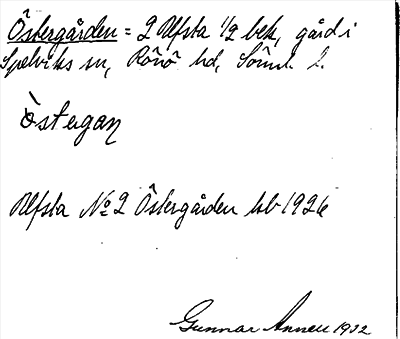 Östergården = 2 Ulfsta 1/2 bek, gård i
Spelviks sn, Rönö hd, Söml. l.
östergaŋ
Ulfsta No 2 Östergården hb 1926
Gunnar Annell 1932